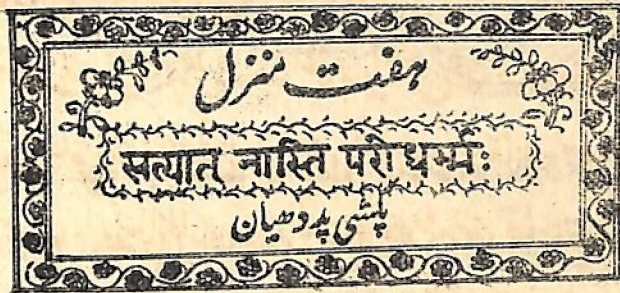 ہفت منزل
सत्यात् नास्ति परो धर्म्मः
پلشی پردھیان